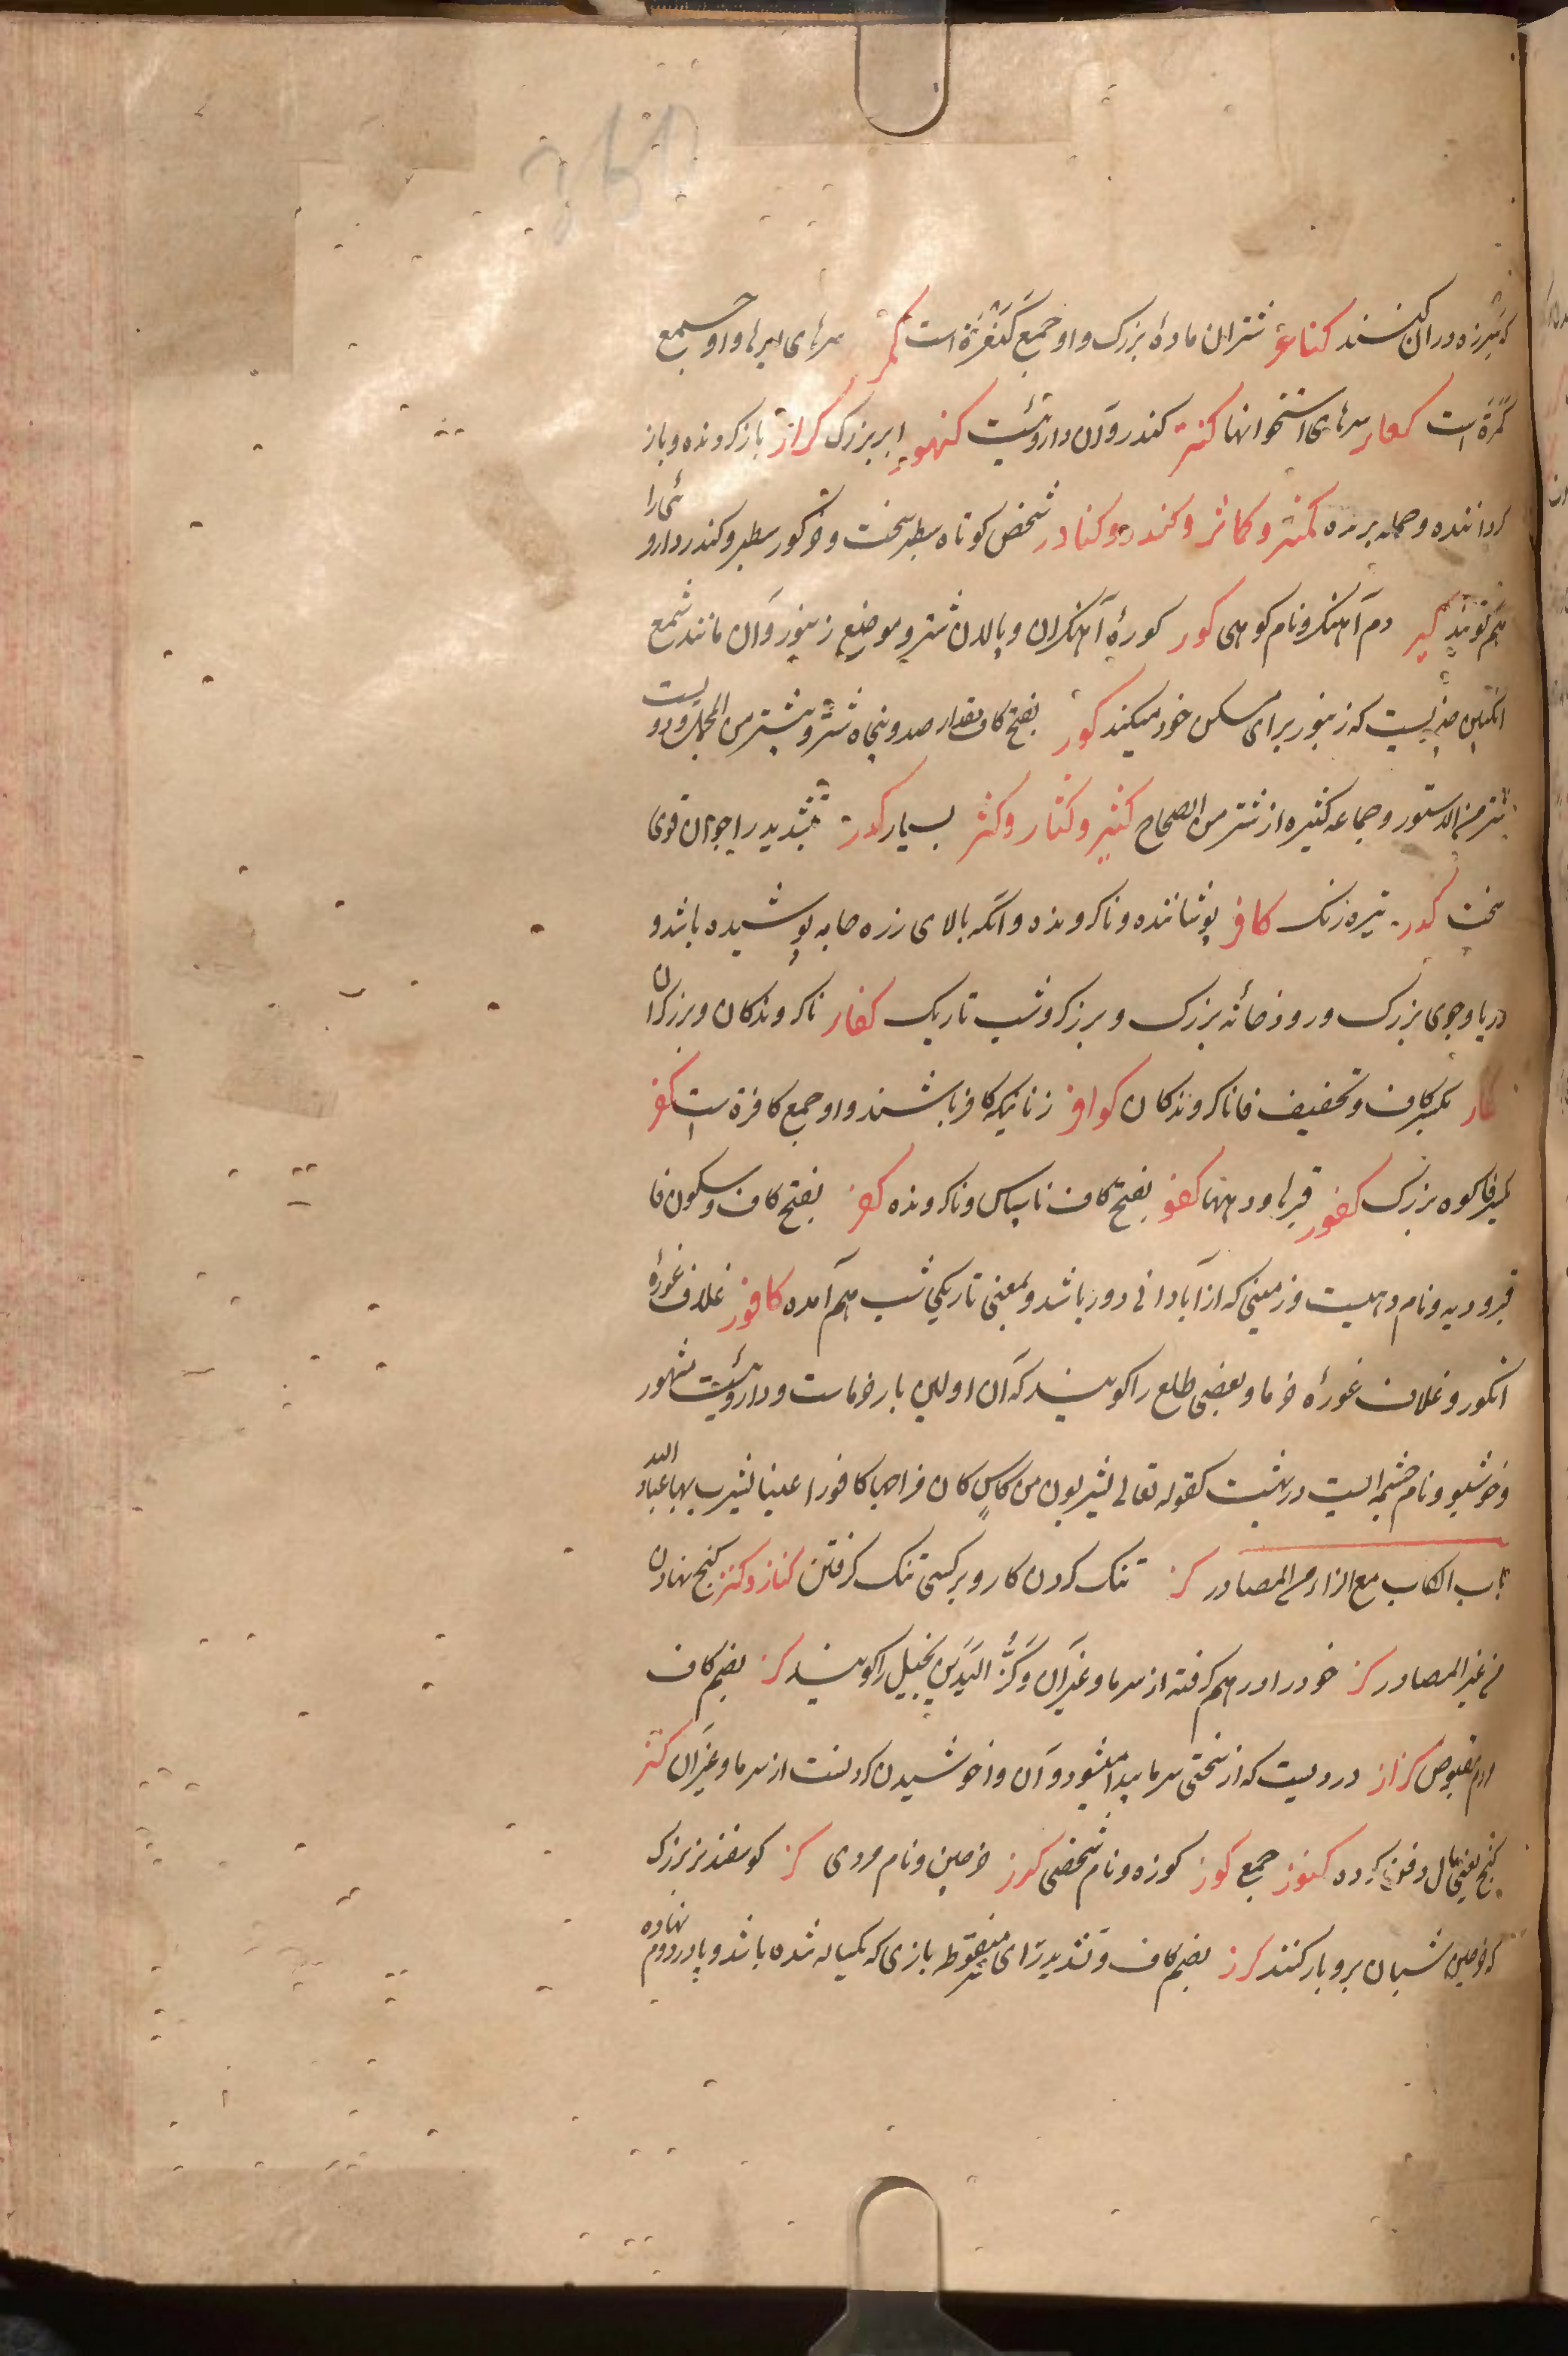 که شیرزه در آن کنند کناعر شتران مادهٔ بزرک و او جمع کَنْعَرَة است کمر سرهای ایرها و او جمع
کَمَرَة است کعابر سرهای استخوانها کندر و آن داروئیست کنهور ابر بزرک کرار بازکردنده و باز
کرداننده و حمله برنده کنثر و کاثر و کندر و کنادر شخص کوتاه سطبر سخت و خر کور سطبر و کندر دارو ئی را
هم کویند کیر دم آهنکر و نام کوهی کور کورهٔ آهنکران و پالان شتر و موضع زنبور و آن مانند شمع
انکبین چیزیست که زنبور برای مسکن خود میکند کور بفتح کاف مقدار صد و پنجاه شتر و بیشتر من المجمل و دویست
شتر من الدستور و جماعه کثیره از شتر من الصحاح کثیر و کثار و کثر بسیار کدر بتشدید را جوان قوی
سخت کدر تیره رنک کافر پوشاننده و ناکرونده و آنکه بالای زره جامه پوشیده باشد و
دریا و جوی بزرک و رودخانه بزرک و برزکر و شب تاریک کفار ناکروندکان و برزکران
کفار بکسر کاف و تخفیف فا ناکروندکان کوافر زنانیکه کافر باشند و او جمع کافرة است کفر
بکسر فا کوه بزرک کفور قبرها و دیهها کفور بفتح کاف ناسپاس و ناکرونده کفر بفتح کاف و سکون فا
قبر و دیه و نام دهیست و زمینی که از آبادانی دور باشد و بمعنی تاریکی شب هم آمده کافور غلاف غورهٔ
انکور و غلاف غورهٔ خرما و بعضی طلع را کویند که آن اولین بار خرماست و داروئیست مشهور
و خوشبو و نام چشمه ایست در بهشت کقوله تعالی یشربون من کاسٍ کان مزاجها کافورا عینا یشرب بها عباد الله
باب الکاف مع الزاء من المصادر کز تنک کردن کار و بر کسی تنک کرفتن کناز و کنز کنج نهادن
من غیر المصادر کز خود را در هم کرفته از سرما و غیر آن و کَزُّ الیَدَیْنِ بخیل را کویند کز بضم کاف
مردم مقبوض کزاز دردیست که از سختی سرما پیدا میشود و آن واخوشیدن کردنست از سرما و غیر آن کنز
کنج یعنی مال دفن کرده کنوز جمع کوز کوزه و نام شخصی کرز خرجین و نام مردی کرز کوسفند نر بزرک
که خرجین شبان برو بار کنند کرز بضم کاف و تشدید رای غیر منقوطه بازی که یکساله شده باشد و پا در دوم نهاده